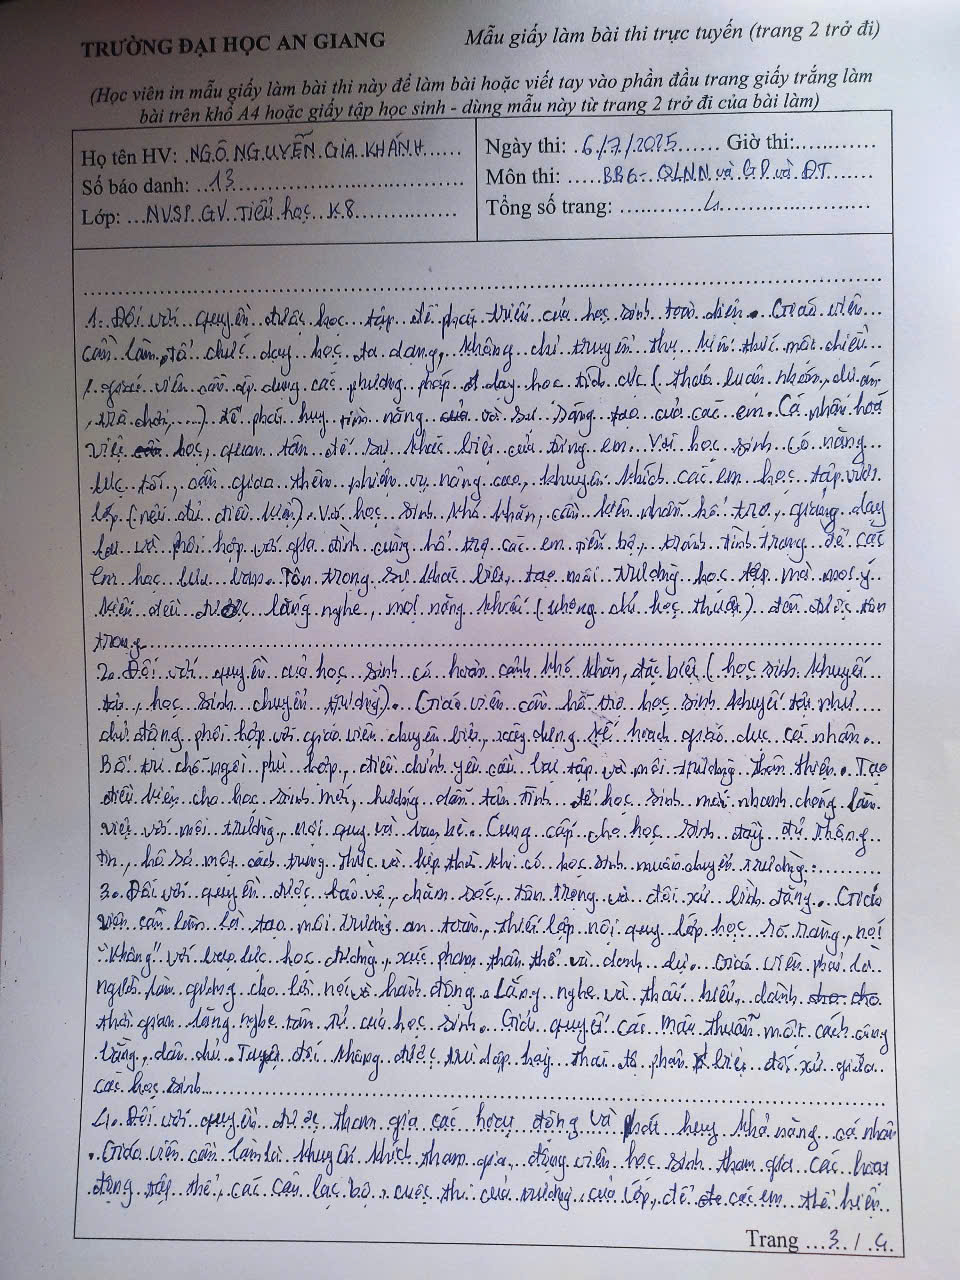 TRƯỜNG ĐẠI HỌC AN GIANG
Mẫu giấy làm bài thi trực tuyến (trang 2 trở đi)
(Học viên in mẫu giấy làm bài thi này để làm bài hoặc viết tay vào phần đầu trang giấy trắng làm
bài trên khổ A4 hoặc giấy tập học sinh - dùng mẫu này từ trang 2 trở đi của bài làm)
Họ tên HV: NGÔ NGUYỄN GIA KHÁNH
Số báo danh: 13
Lớp: NVSP GV Tiểu học K8
Ngày thi: 6/7/2025 Giờ thi:
Môn thi: BB6- QLNN và GD và ĐT
Tổng số trang: 4
1. Đối với quyền được học tập để phát triển của học sinh toàn diện. Giáo viên
cần làm tổ chức dạy học đa dạng, không chỉ truyền thụ kiến thức một chiều
, giáo viên cần áp dụng các phương pháp dạy học tích cực (thảo luận nhóm, dự án
, trò chơi,...) để phát huy tiềm năng và sự sáng tạo của các em. Cá nhân hoá
việc học, quan tâm đến sự khác biệt của từng em. Với học sinh có năng
lực tốt, cần giao thêm nhiệm vụ nâng cao, khuyến khích các em học tập vượt
lớp (nếu đủ điều kiện). Với học sinh khó khăn, cần kiên nhẫn hỗ trợ, giảng dạy
lại và phối hợp với gia đình cùng hỗ trợ các em tiến bộ, tránh tình trạng để các
em học lưu ban. Tôn trọng sự khác biệt, tạo môi trường học tập mà mọi ý
kiến đều được lắng nghe, mọi năng khiếu (không chỉ học thuật) đều được tôn
trọng
2. Đối với quyền của học sinh có hoàn cảnh khó khăn, đặc biệt (học sinh khuyết
tật, học sinh chuyển trường). Giáo viên cần hỗ trợ học sinh khuyết tật như
chủ động phối hợp với giáo viên chuyên biệt, xây dựng kế hoạch giáo dục cá nhân.
Bố trí chỗ ngồi phù hợp, điều chỉnh yêu cầu bài tập và môi trường thân thiện. Tạo
điều kiện cho học sinh mới, hướng dẫn tận tình để học sinh mới nhanh chóng làm
việc với môi trường, nội quy và bạn bè. Cung cấp cho học sinh đầy đủ thông
tin, hồ sơ một cách trung thực và kịp thời khi có học sinh muốn chuyển trường.
3. Đối với quyền được bảo vệ, chăm sóc, tôn trọng và đối xử bình đẳng. Giáo
viên cần làm là tạo môi trường an toàn, thiết lập nội quy lớp học rõ ràng, nói
"không" với bạo lực học đường, xúc phạm thân thể và danh dự. Giáo viên phải là
người làm gương cho lời nói và hành động. Lắng nghe và thấu hiểu, dành
thời gian lắng nghe tâm tư của học sinh. Giải quyết các mâu thuẫn một cách công
bằng, dân chủ. Tuyệt đối không được trù dập hay thái độ phân biệt đối xử giữa
các học sinh.
4. Đối với quyền được tham gia các hoạt động và phát huy khả năng cá nhân
. Giáo viên cần làm là khuyến khích tham gia, động viên học sinh tham gia các hoạt
động tập thể, các câu lạc bộ, cuộc thi của trường, của lớp, để các em thể hiện
Trang 3 / 4